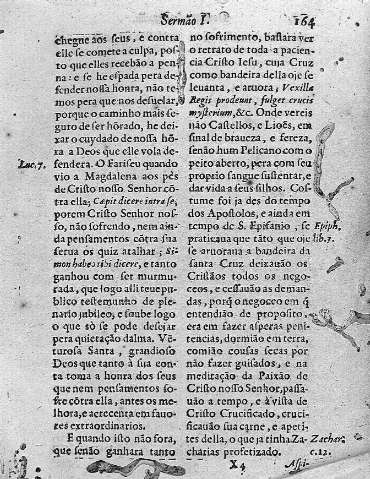 Sermão I. 164
chegue aos seus, e contra
elle se comete a culpa, pos-
to que elles recebão a pe-
na: e se he espada pera de-
fender nossa honra, não te-
mos pera que nos desuelar,
porque o caminho mais se-
guro de ser hõrado, he dei-
xar o cuydado de nossa hõ-
ra a Deos que elle vola de-
Luc. 7. fenderá. O Fariseu quando
vio a Magdalena aos pés
de Cristo nosso Senhor cõ-
tra ella; Cæpit dicere intra se,
porem Cristo Senhor nos-
so, não sofrendo, nem ain-
da pensamentos cõtra sua
serua os quiz atalhar; Si-
mon habeo tibi dicere, e tanto
ganhou com ser murmu-
rada, que logo alli teue pu-
blico testemunho de ple-
nario jubileo, e soube logo
o que sò se pode desejar
pera quietação dalma. Vẽ-
turosa Santa, grandioso
Deos que tanto à sua con-
ta toma a honra dos seus
que nem pensamentos so-
fre cõtra ella, antes os me-
lhora, e acrecenta em fauo-
res extraordinarios.
E quando isto não fora,
que senão ganhara tanto
no sofrimento, bastara ver
o retrato de toda a pacien-
cia Cristo Iesu, cuja Cruz
como bandeira della oje se
leuanta, e aruora, Vexilla
Regis prodeunt, fulget crucis
mysterium, &c. Onde vereis
não Castellos, e Lioẽs, em
sinal de braueza, e fereza,
senão hum Pelicano com o
peito aberto, pera com seu
proprio sangue sustentar, e
dar vida a seus filhos. Cos-
tume foi ja des do tempo
dos Apostolos, e ainda em
tempo de S. Epifanio, se Epiph.
praticaua que tãto que oje lib. 7.
se aruoraua a bandeira da
santa Cruz deixauão os
Cristãos todos os nego-
ceos, e cessauão as deman-
das, porq̃ o negoceo em q̃
entendião de proposito,
era em fazer asperas peni-
tencias, dormião em terra,
comião cousas secas por
não fazer guisados, e na
meditação da Paixão de
Cristo nosso Senhor, passa-
uão a tempo, e à vista de
Cristo Crucificado, cruci-
ficauão sua carne, e apeti-
tes della, o que ja tinha Za- Zachar.
charias profetizado. c. 12.
X4 Aspi-